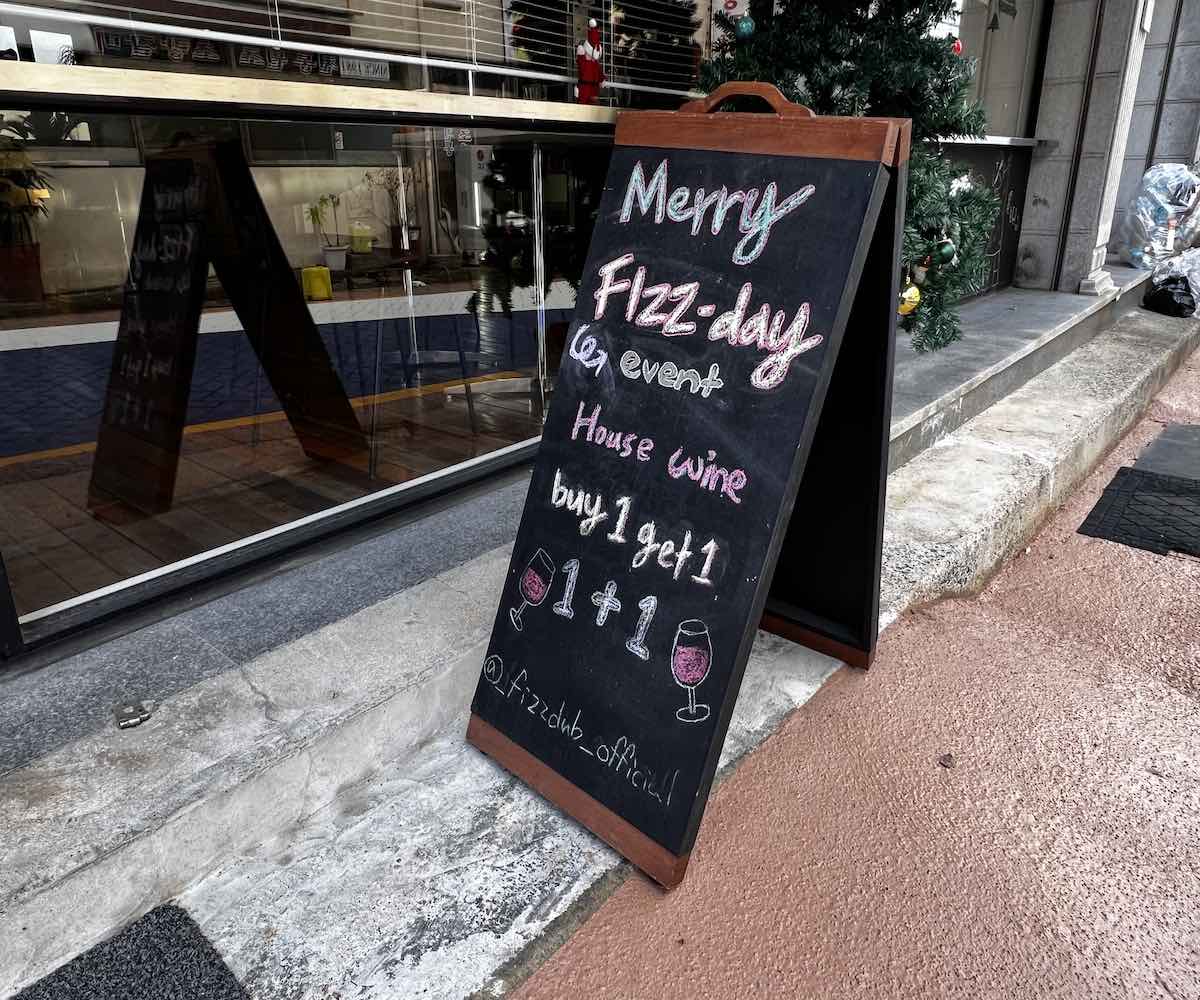 Merry
FIzz-day
event
House wine
buy 1 get 1
1+1
@_fizzclub_official